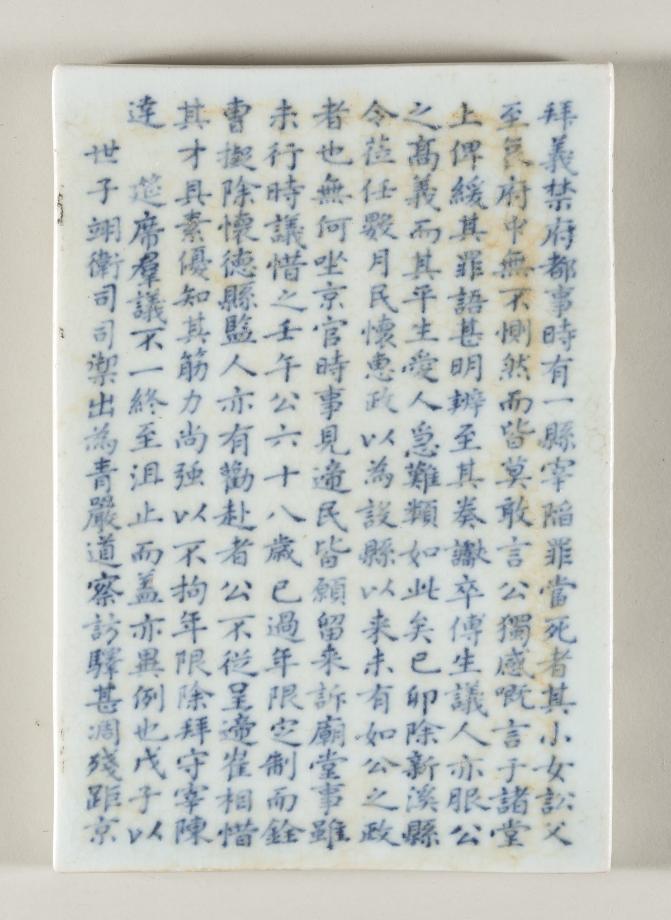 拜義禁府都事時有一縣宰陷罪當死者其小女訟父
至冤府中無不惻然而皆莫敢言公獨感嘅言于諸堂
上俾緩其罪語甚明辨至其奏讞卒傅生議人亦服公
之高義而其平生愛人急難類如此矣己卯除新溪縣
令莅任數月民懷惠政以為設縣以来未有如公之政
者也無何坐京官時事見遞民皆願留来訴廟堂事雖
未行時議惜之壬午公六十八歲已過年限定制而銓
曹擬除懷德縣監人亦有勸赴者公不從呈遞崔相惜
其才具素優知其筋力尚强以不拘年限除拜守宰陳
達 筵席羣議不一終至沮止而盖亦異例也戊子以
世子翊衛司司禦出為青巖道察訪驛甚凋殘距京